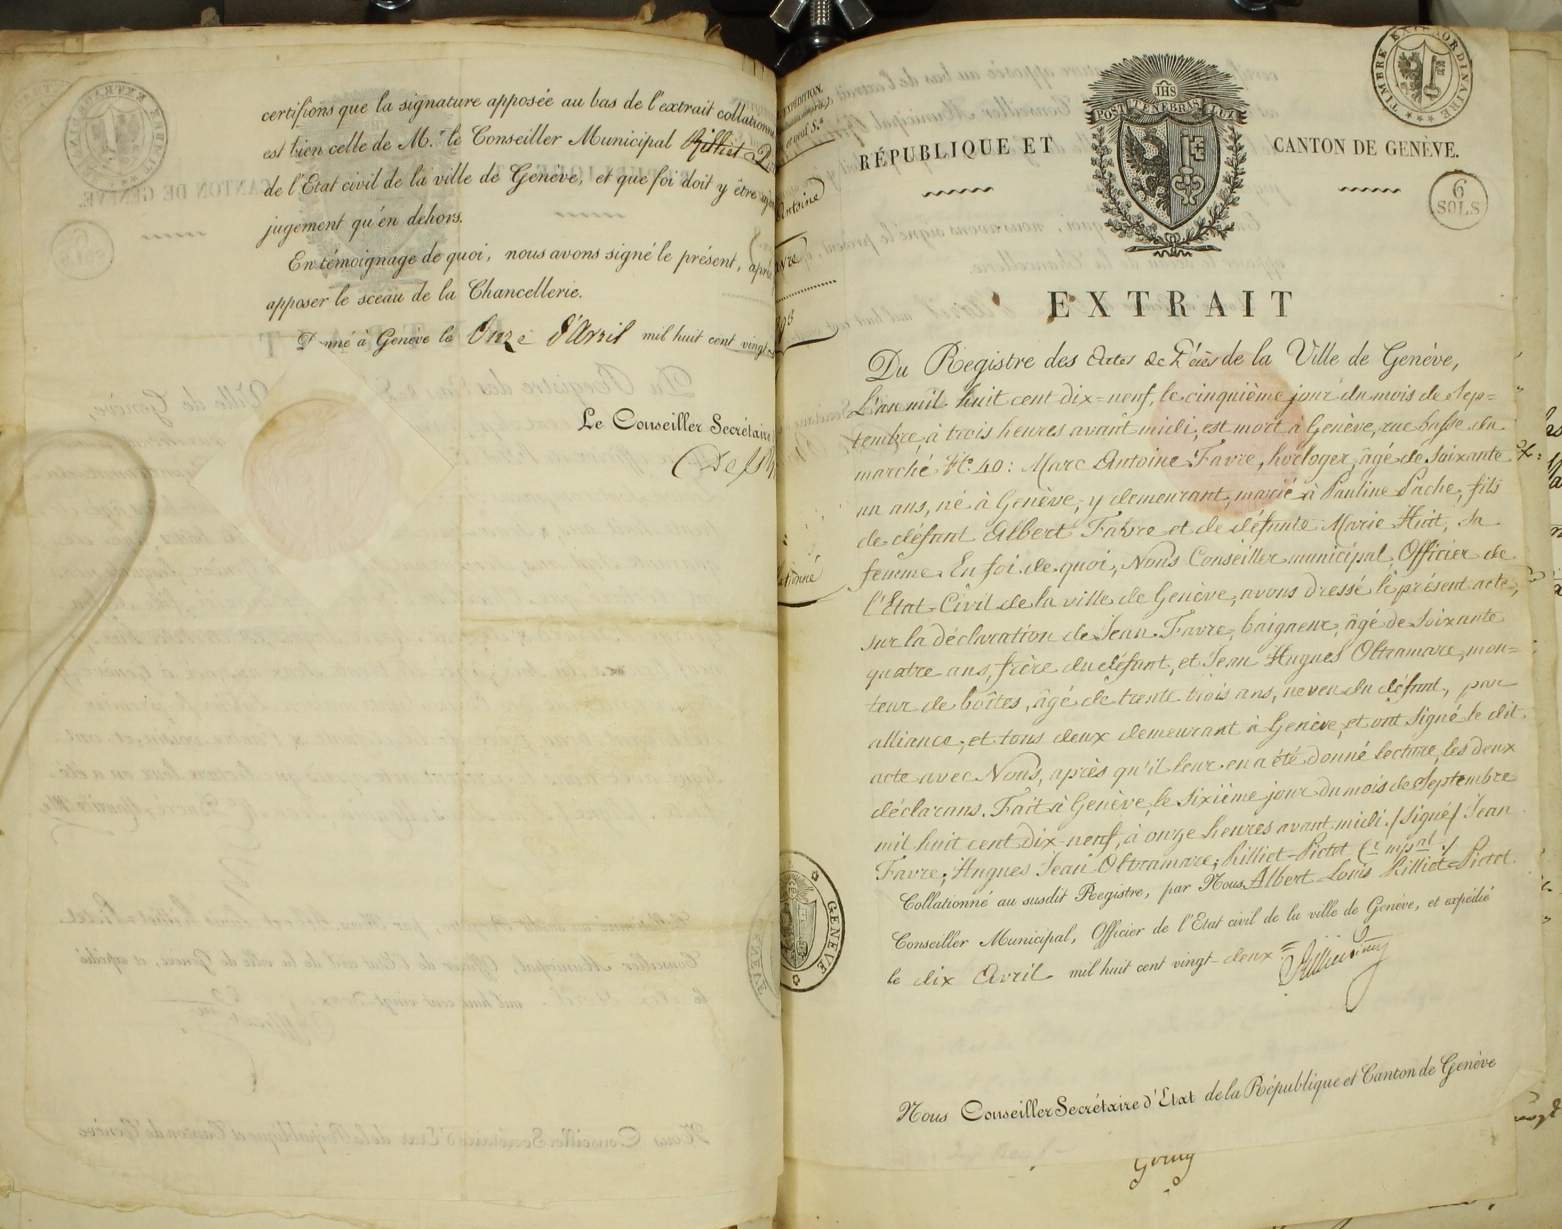 certifions que la signature apposée au bas de l'extrait collationné
est bien celle de M.r le Conseiller Municipal Rilliet
de l'Etat civil de la ville de Genève, et que foi doit y être
jugement qu'en dehors.
En témoignage de quoi, nous avons signé le présent, après
apposer le sceau de la Chancellerie.
Donné à Genève le Onze d'Avril mil huit cent vingt
Le Conseiller Secrétaire
EXPÉDITION.
Antoine
TIMBRE EXTRAORDINAIRE
JHS
POST TENEBRAS LUX
RÉPUBLIQUE ET CANTON DE GENÈVE.
6
SOLS
EXTRAIT
Du Registre des Actes de Décès de la Ville de Genève,
L'an mil huit cent dix=neuf, le cinquième jour du mois de Sep=
tembre, à trois heures avant midi, est mort à Genève, rue basse du
marché N.º 40: Marc Antoine Favre, horloger, âgé de soixante
un ans, né à Genève, y demeurant, marié à Pauline Pache, fils
de défunt Albert Favre et de défunte Marie Huit, sa
femme. En foi de quoi, Nous Conseiller municipal, Officier de
l'Etat-Civil de la ville de Genève, avons dressé le présent acte,
sur la déclaration de Jean Favre, baigneur, âgé de soixante
quatre ans, frère du défunt, et Jean Hugues Oltramare, mon=
teur de boîtes, âgé de trente trois ans, neveu du défunt, par
alliance, et tous deux demeurant à Genève, et ont signé le dit
acte avec Nous, après qu'il leur en a été donné lecture, les deux
déclarans. Fait à Genève, le sixième jour du mois de Septembre
mil huit cent dix-neuf, à onze heures avant midi. /signé/ Jean
Favre; Hugues Jean Oltramare; Rilliet-Pictet (c. mpal./
Collationné au susdit Registre, par Nous Albert Louis Rilliet=Pictet
Conseiller Municipal, Officier de l'Etat civil de la ville de Genève, et expédié
le dix Avril mil huit cent vingt-deux=
GENEVE
Nous Conseiller Secrétaire d'Etat de la République et Canton de Genève